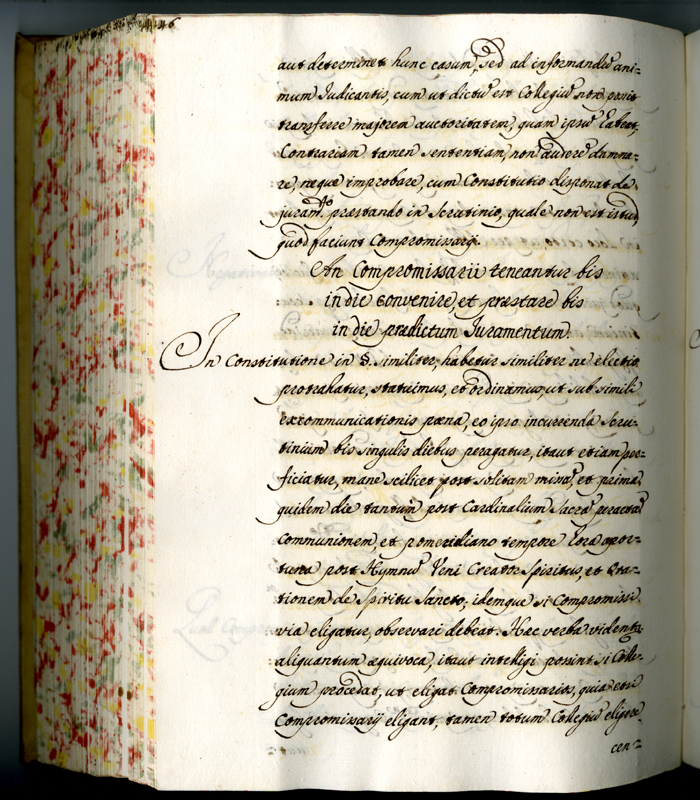 aut determinet hunc casum, sed ad informandũ ani=
mum Iudicantis, cum ut dictũ est Collegiũ non possit
transferre majorem auctoritatem, quam ipsũ habeat.
Contrariam tamen sententiam, non auderẽ damna=
re, neque improbare, cum Constitutio disponat de
juramto. præstando in Scrutinio, quale non est istud,
quod faciunt Compromissarij.
An Compromissarii teneantur bis
in die convenire, et præstare bis
in die prædictum Iuramentum.
In Constitutione in §. similiter, habetur similiter ne electio
protrahatur, statuimus, et ordinamus, ut sub simili
excommunicationis pæna, eo ipso incurrenda Scru=
tinium bis singulis diebus peragatur, itaut etiam per=
ficiatur, mane scilicet post solitam missã, et prima
quidem die tantum post Cardinalium Sacrã peractã
Communionem, et pomeridiano tempore hora oppor=
tuna post Hymnũ Veni Creator Spiritus, et Ora=
tionem de Spiritu Sancto; idemque si Compromissi
via eligatur, observari debeat. Hæc verba videntur
aliquantum æquivoca, itaut intelligi possint si Colle=
gium procedat, ut eligat Compromissarios, quia etsi
Compromissarij eligant, tamen totum Collegiũ eligere
cen=